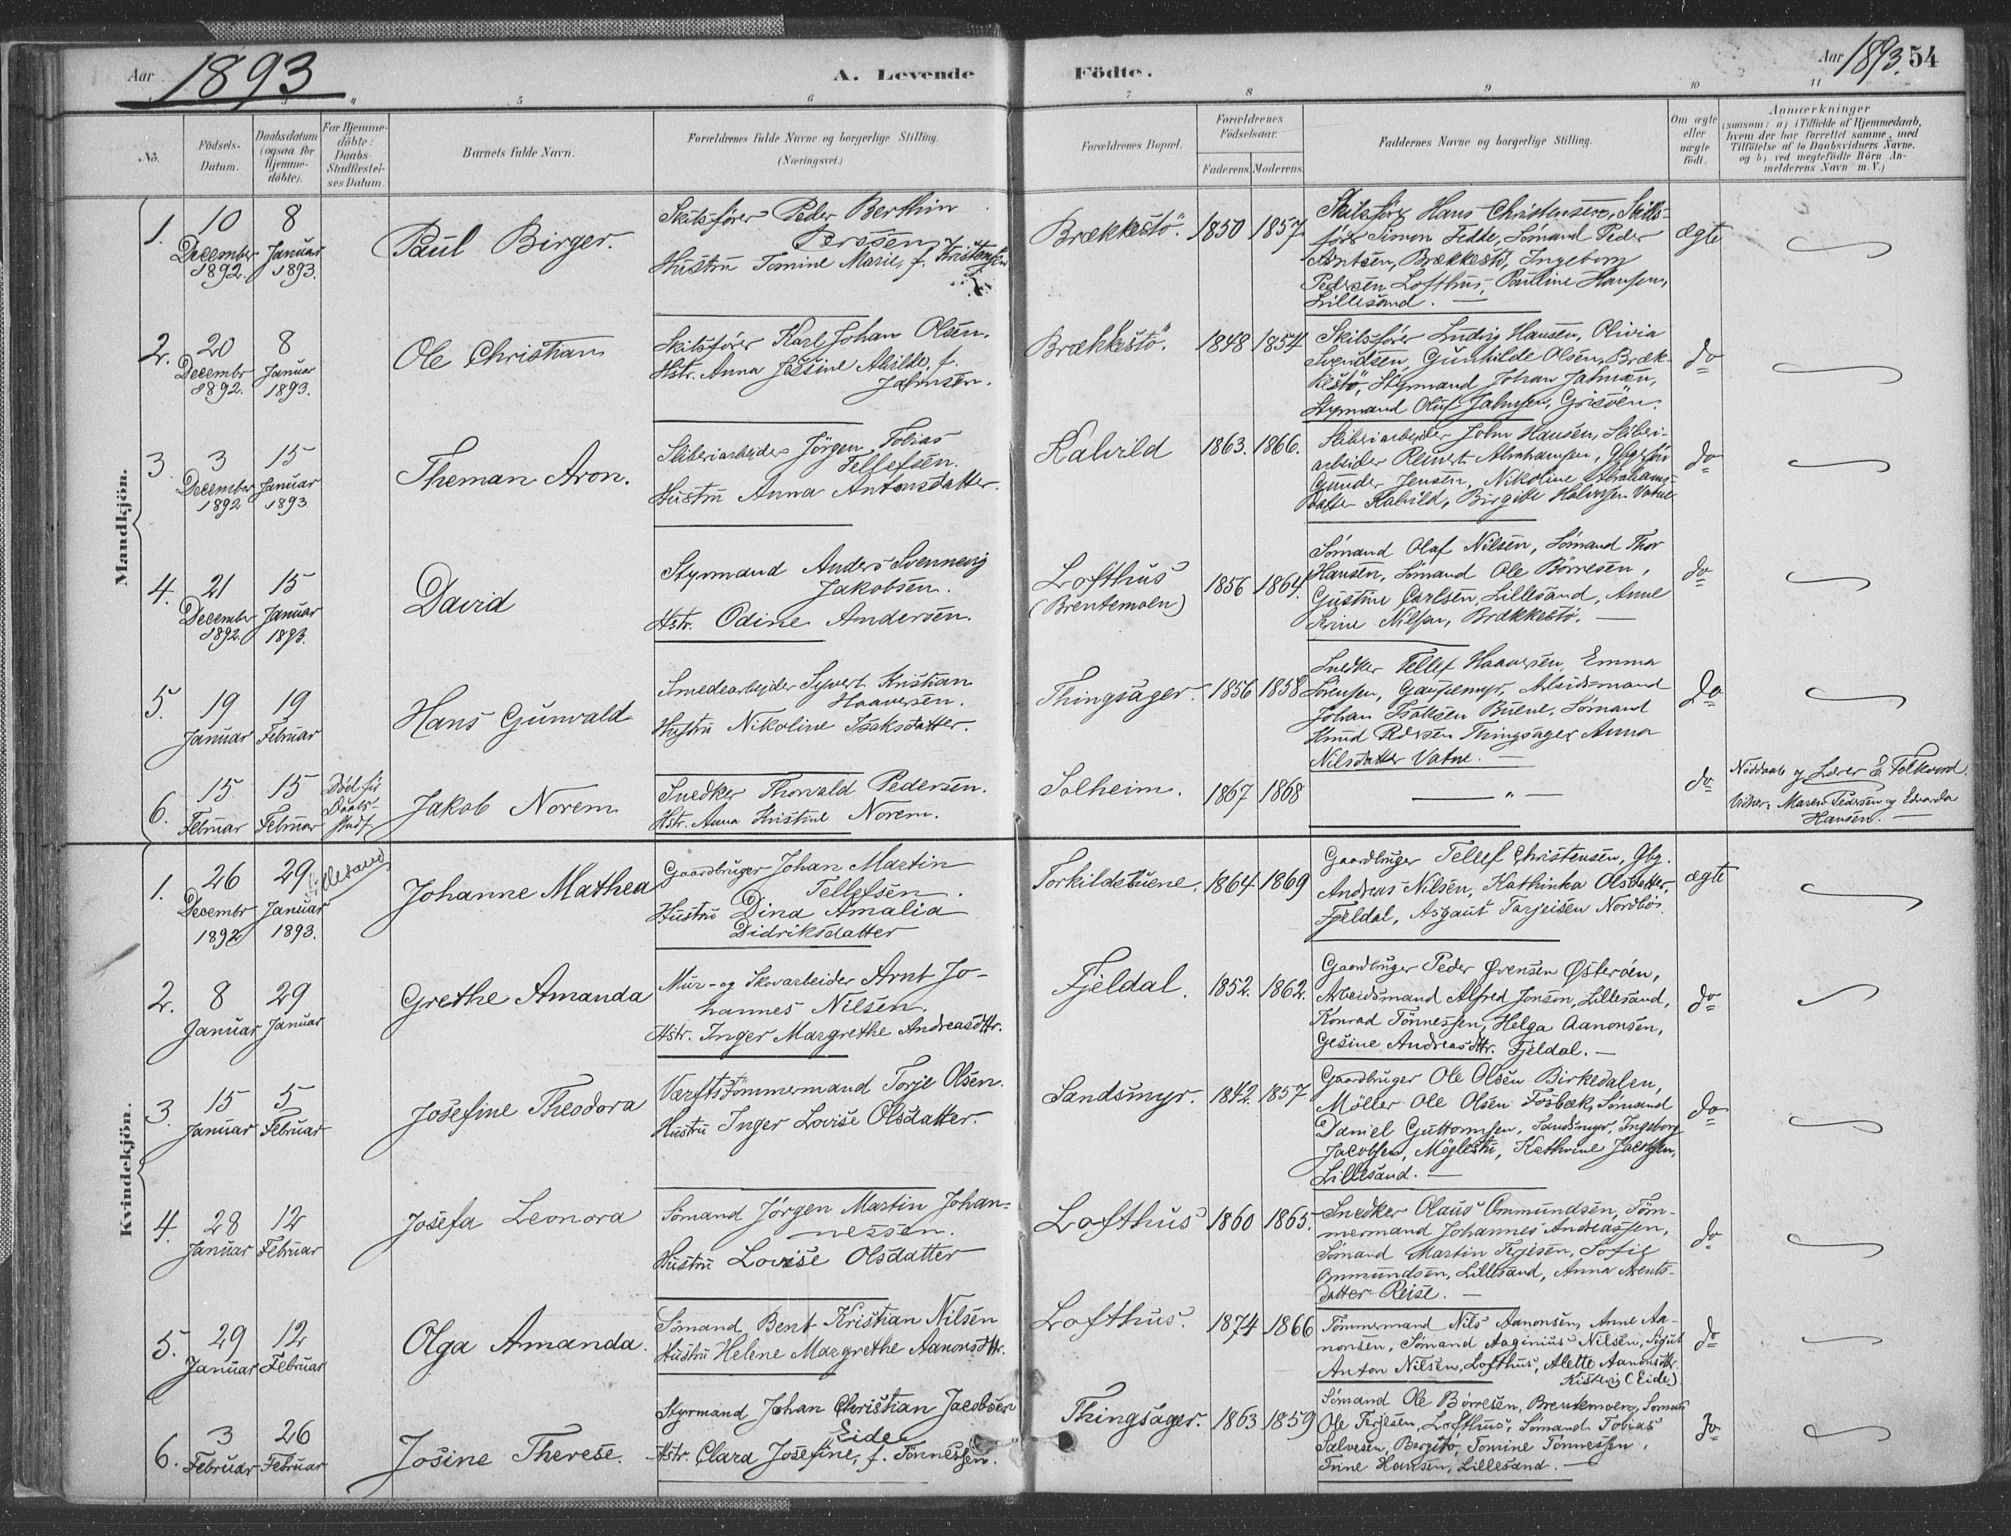 Aar 1893
A. Levende Födte.
Aar 1893. 54
3 4 5 6 7 8 9 10 11
No.
Födsels-Datum.
Daabsdatum (ogsaa for Hjemme-döbte).
For Hjemme-döbte: Daabs-Stadfæstel-ses Datum.
Barnets fulde Navn.
Forældrenes fulde Navne og borgerlige Stilling. (Næringsvei.)
Forældrenes Bopæl.
Forældrenes Födselsaar.
Faderens. Moderens.
Faddernes Navne og borgerlige Stilling.
Om ægte eller uægte födt.
Anmærkninger
(saasom: a) i Tilfælde af Hjemmedaab, hvem der har forrettet samme, med Tilföielse af to Daabsvidners Navne, og b) ved uægtefödte Börn An-melderens Navn m. V.)
Mandkjön.
1. 10 December 1892. 8 Januar 1893.
Paul Birger.
Skibsfører Peder Berthin
Perssen,
Hustru Tomine Marie, f. Kristensen
Brækkestö. 1850 1857.
Skibsfører Hans Christensen, Skibs-
fører Simon Fedde, Sömand Peder
Arntsen, Brækkestö, Ingeborg
Pedersen Lofthus, Pauline Hansen,
Lillesand.
ægte
2. 20 Decembr 1892. 8 Januar 1893.
Ole Christian
Skibsfører Karl Johan Olsen.
Hstr. Anna Jessine Alvilde, f.
Jahnsen.
Brækkestö. 1848 1854
Skibsfører Ludvig Hansen, Olivia
Svendsen, Gunhilde Olsen, Bræk-
kestö, Styrmand Johan Jahnsen,
Styrmand Oluf Jahnsen, Grisöen.
do
3. 3 December 1892 15 Januar 1893
Theman Aron.
Sliberiarbeider Jörgen Tobias
Tellefsen.
Hustru Anna Antonsdatter.
Kalvild 1863. 1866.
Sliberiarbeider John Hansen, Sliberi-
arbeider Reinert Abrahamsen, Gbgesön
Gunder Jensen, Nikoline Abrahams-
datter Kalvild, Birgitte Halvorsen Vatne
do
4. 21 December 1892. 15 Januar 1893.
David
Styrmand Anders Svennevig
Jakobsen.
Hstr. Odine Andersen.
Lofthus
(Brentemoen) 1856 1864.
Sömand Olaf Nilsen, Sömand Thor
Hansen, Sömand Ole Børresen,
Gustine Carlsen, Lillesand, Anne
Krine Nilsen, Brækkestö.
do
5. 19 Januar 19 Februar
Hans Gunvald
Smedearbeider Syvert Kristian
Haaversen.
Hustru Nikoline Isaksdatter.
Thingsager. 1856 1858
Snedker Tellef Haaversen, Emma
Sörensen, Gaupemyr, Arbeidsmand
Johan Isaksen Buene, Sömand
Knud Pedersen Thingsager, Anna
Nilsdatter Vatne.
do
6. 15 Februar 15 Februar Död før Daabs-stadf.
Jakob Norem
Snedker Thorvald Pedersen.
Hstr. Anna Kristine Norem.
Solheim. 1867 1868
— „ —
do
Nöddaab af Lærer E. Folkvord.
Vidner: Maren Pedersen og Edvarda
Hansen.
Kvindekjön.
1. 26 Decembr 1892 29 Januar 1893. Lillesand
Johanne Mathea
Gaardbruger Johan Martin
Tellefsen.
Hustru Dina Amalia
Didriksdatter
Torkildsbuene. 1864 1869
Gaardbruger Tellef Christensen, Gbg.
Andreas Nilsen, Kathinka Olsdatter,
Fjeldal, Asgaut Tarjeisen Nordbö.
ægte
2. 8 Januar 29 Januar
Grethe Amanda
Mur- og Skovarbeider Arnt Jo-
hannes Nilsen.
Hstr. Inger Margrethe Andreasdttr.
Fjeldal. 1852. 1862.
Gaardbruger Peder Örensen Österöen,
Arbeidsmand Alfred Jonson, Lillesand,
Konrad Tönnessen, Helga Aanonsen,
Gesine Andreasdttr. Fjeldal.
do
3. 15 Januar 5 Februar
Josefine Theodora
Værftstömmermand Torje Olsen.
Hustru Inger Lovise Olsdatter.
Sandsmyr. 1842. 1857
Gaardbruger Ole Olsen Birkedalen,
Möller Ole Olsen Fosbæk, Sömand
Daniel Guttormsen, Sandsmyr, Ingeborg
Jacobsen, Möglestu, Kathrine Jacobsen,
Lillesand.
do
4. 28 Januar 12 Februar
Josefa Leonora
Sömand Jörgen Martin Johan-
nessen.
Hustru Lovise Olsdatter
Lofthus 1860 1865.
Snedker Olaus Ommundsen, Töm-
mermand Johannes Andreassen,
Sömand Martin Terjesen, Sofie
Ommundsen, Lillesand, Anna Arents-
datter Reise.
do
5. 29 Januar 12 Februar
Olga Amanda.
Sömand Bent Kristian Nilsen
Hustru Helene Margrethe Aanonsdttr.
Lofthus. 1874 1866
Tömmermand Nils Aanonsen, Anne Aa-
nonsen, Sömand Aaginius Nilsen, Sögut
Anton Nilsen, Lofthus, Alette Aanonsdttr.
(Eide)
do
6. 3 Februar 26 Februar
Josine Therese.
Styrmand Johan Christian Jacobsen
Eide
Hstr. Clara Josefine, f. Tönnessen.
Thingsager. 1863 1859
Sömand Ole Börresen, Brentemoen, Sömand
Ole Terjesen, Lofthus, Sömand Tobias
Salvesen, Bergstö, Tomine Tönnessen,
Trine Hansen, Lillesand.
do